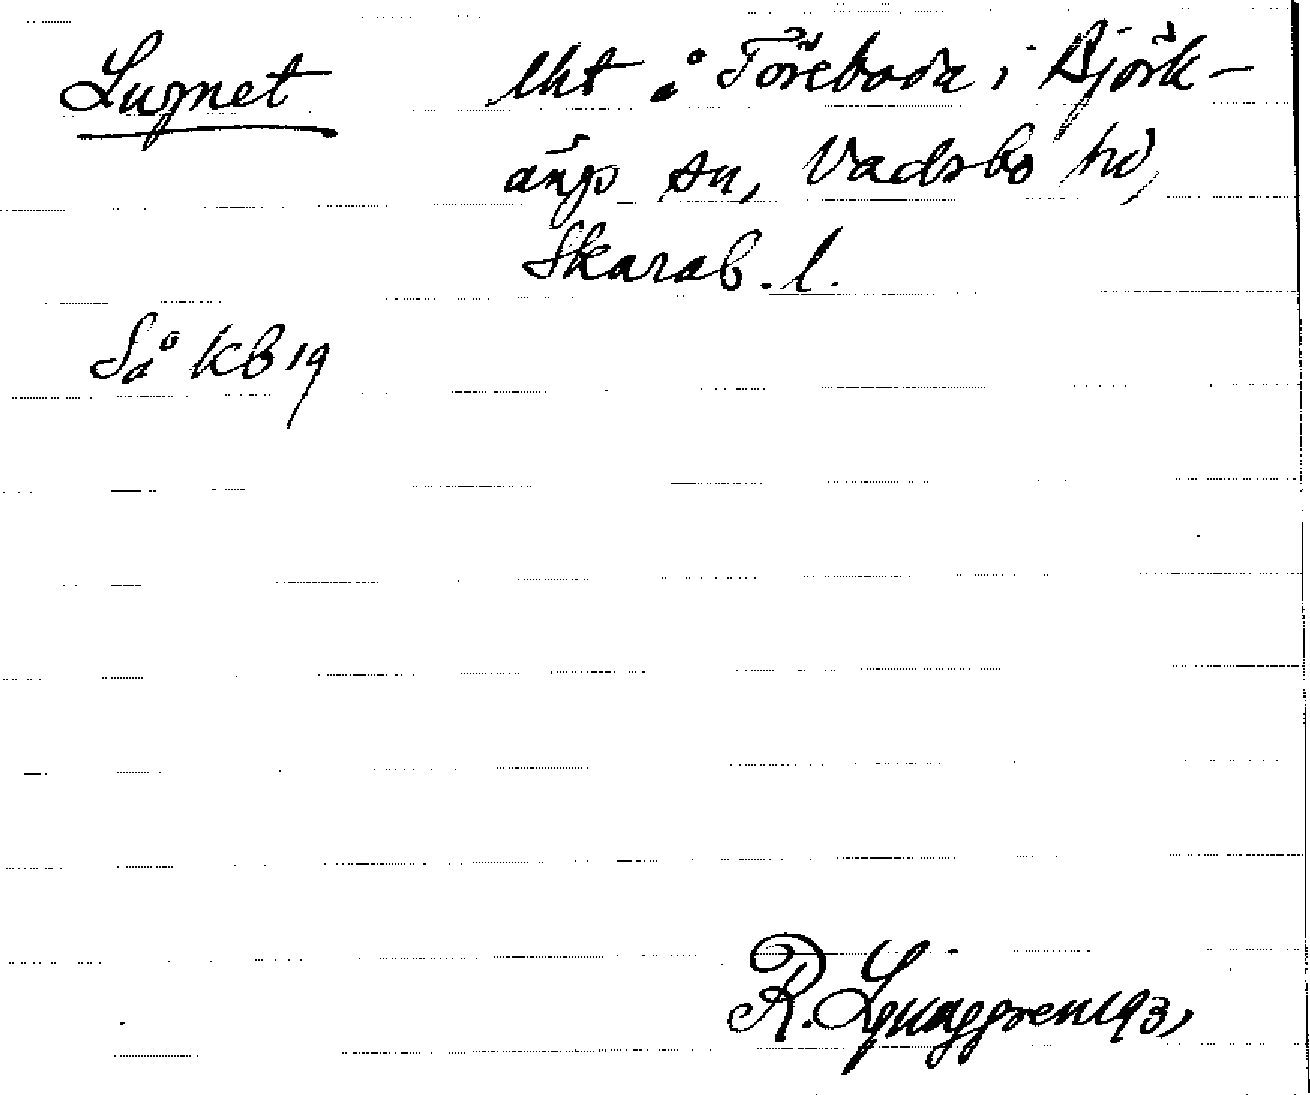 Lugnet lht å Töreboda i Björk-
ängs sn, Vadsbo hd,
Skarab. l.
Så KB 19
R. Ljunggren 1931